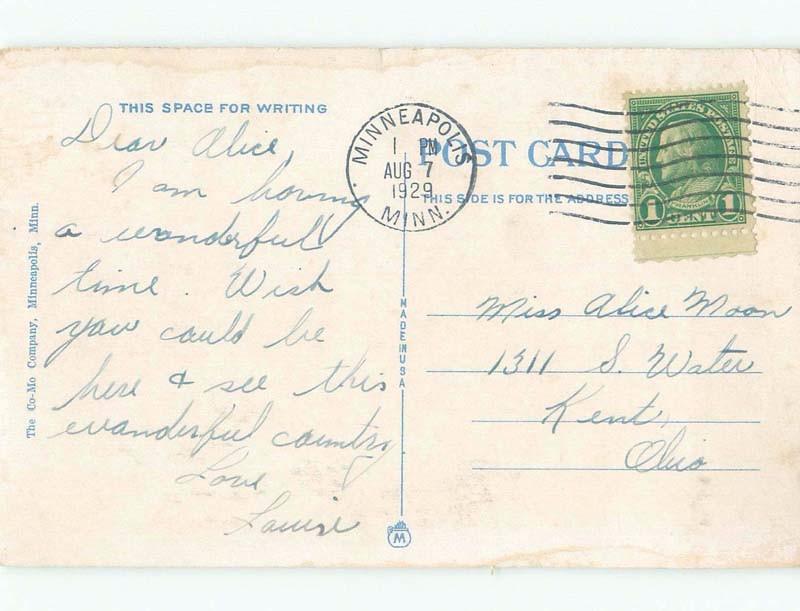 THIS SPACE FOR WRITING
Dear Alice,
I am having
a wonderful
time. Wish
you could be
here & see this
wonderful country
Love
Louise
The Co-Mo Company, Minneapolis, Minn.
MADE IN USA
M
MINNEAPOLIS
1 PM
AUG 7
1929
MINN.
POST CARD
THIS SIDE IS FOR THE ADDRESS
UNITED STATES POSTAGE
FRANKLIN
1 CENT 1
Miss Alice Moon
1311 S. Water
Kent,
Ohio